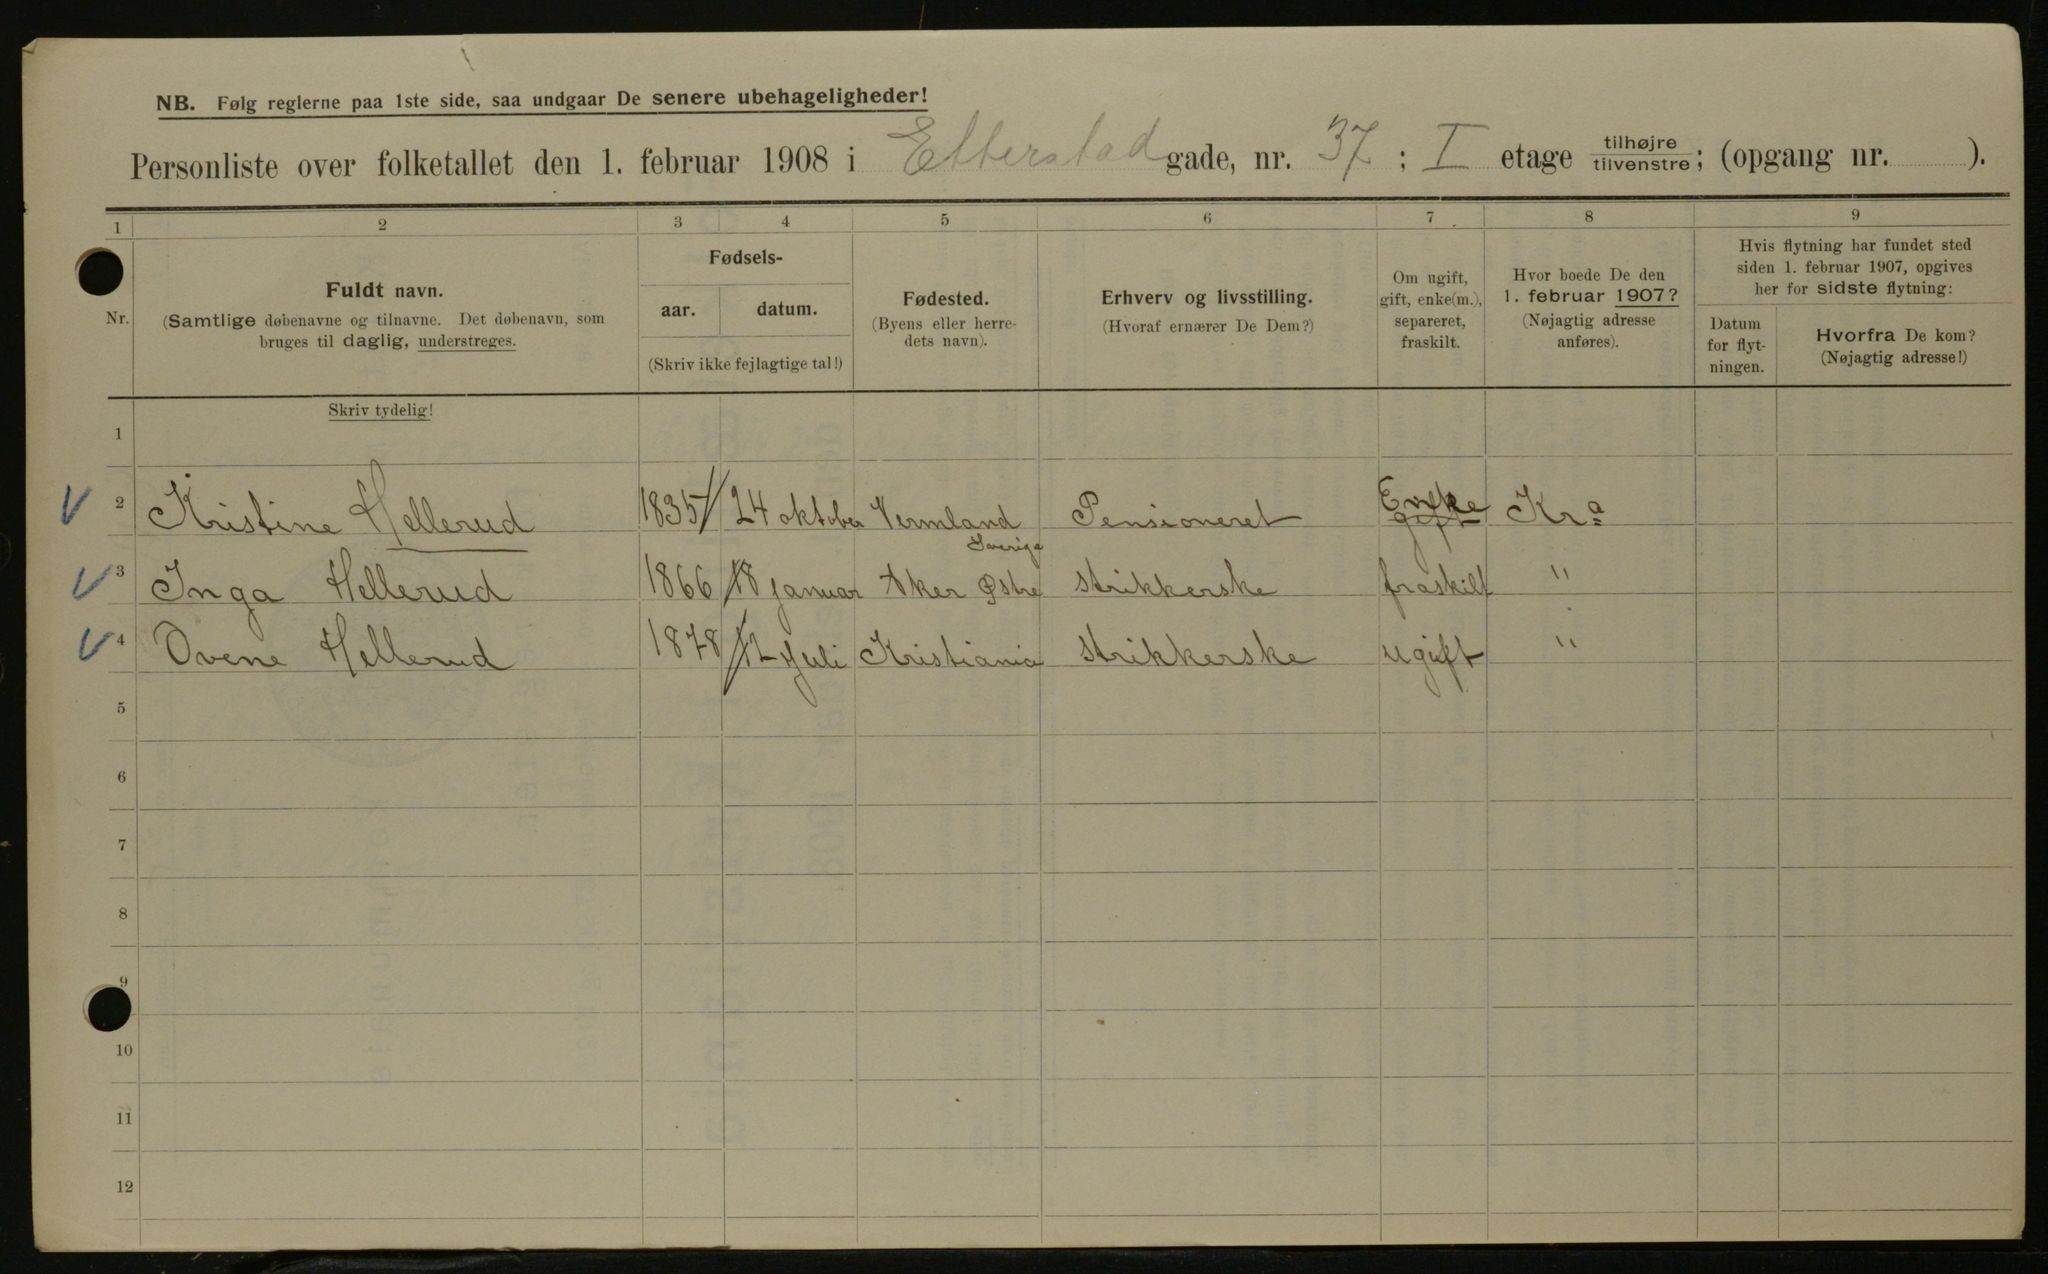 NB. Følg reglerne paa 1ste side, saa undgaar De senere ubehageligheder!
Personliste over folketallet den 1. februar 1908 i Etterstad gade, nr. 37 ; I etage tilhøjre tilvenstre; (opgang nr. ).
1 2 3 4 5 6 7 8 9
Nr.
Fuldt navn.
(Samtlige døbenavne og tilnavne. Det døbenavn, som
bruges til daglig, understreges.
Fødsels-
aar. datum.
(Skriv ikke fejlagtige tal!)
Fødested.
(Byens eller herre-
dets navn).
Erhverv og livsstilling.
(Hvoraf ernærer De Dem?)
Om ugift,
gift, enke(m.),
separeret,
fraskilt.
Hvor boede De den
1. februar 1907?
(Nøjagtig adresse
anføres).
Hvis flytning har fundet sted
siden 1. februar 1907, opgives
her for sidste flytning:
Datum
for flyt-
ningen.
Hvorfra De kom?
(Nøjagtig adresse!)
Skriv tydelig!
1
2 Kristine Hellerud 1835 24 oktober Vermland Sverige Pensioneret gift Enke Kra
3 Inga Hellerud 1866 18 januar Aker Østre strikkerske fraskilt "
4 Ovene Hellerud 1878 12 Juli Kristiania strikkerske ugift "
5
6
7
8
9
10
11
12